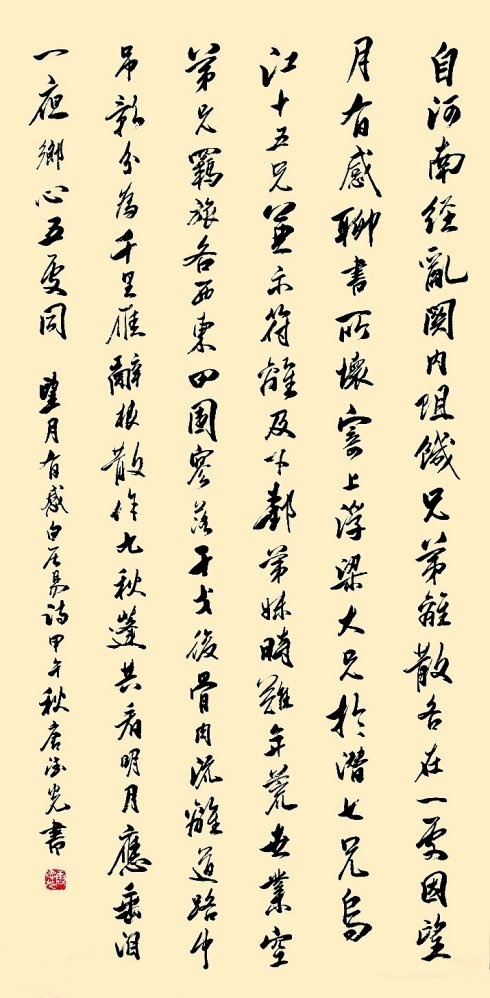 自河南經亂關内阻饑兄弟離散各在一處因望
月有感聊書所懷寄上浮梁大兄於潛七兄烏
江十五兄兼示符離及下邽弟妹時難年荒世業空
弟兄羈旅各西東田園寥落干戈後骨肉流離道路中
吊影分為千里雁辭根散作九秋蓬共看明月應垂泪
一夜鄉心五處同 望月有感白居易詩甲午秋唐光書